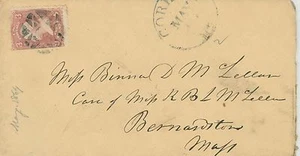 COR
MAY
2
Miss Binna D McLellan
Care of Miss K B L McLellan
Bernardston
Mass